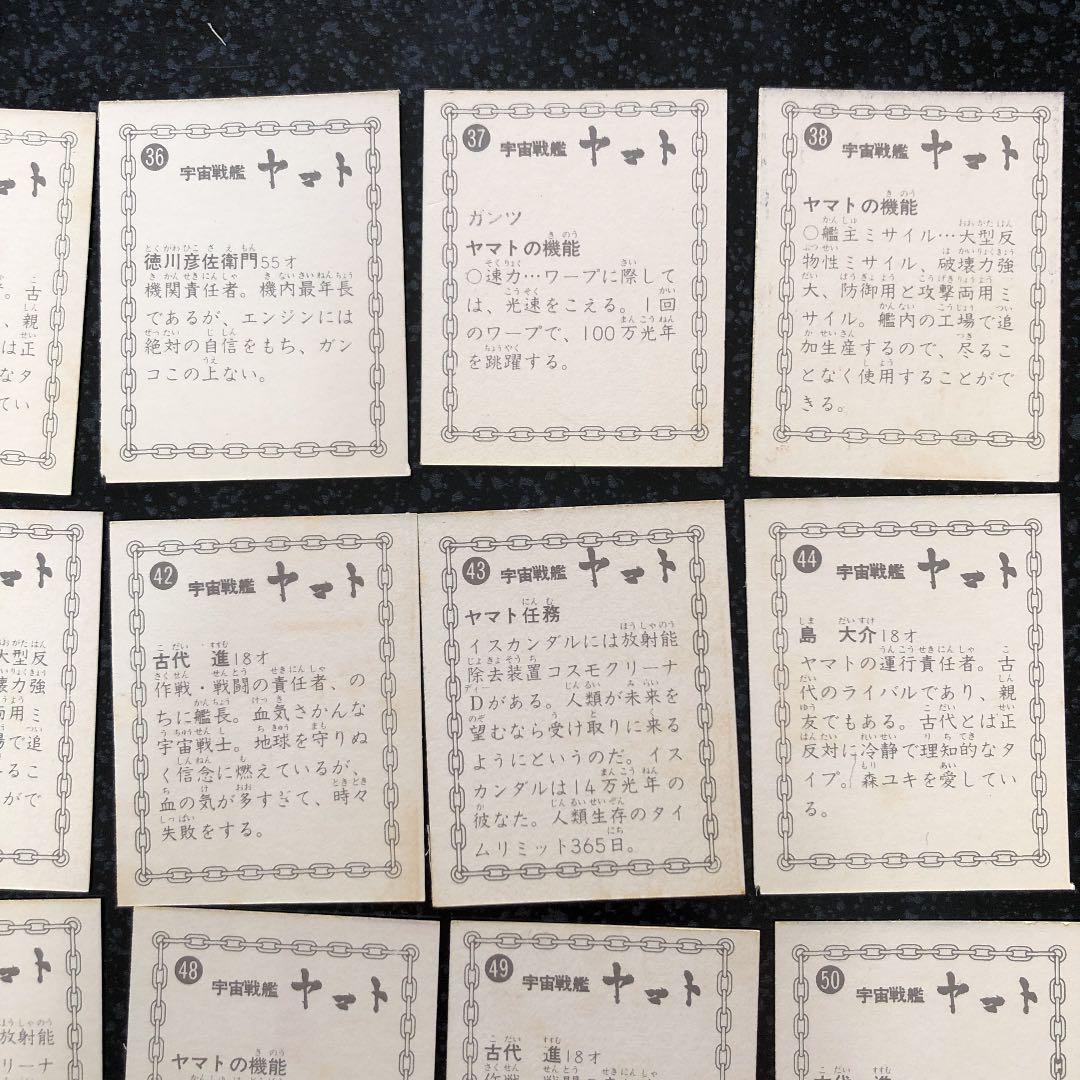 ヤマト
。古
、親
は正
なタ
てい
36 宇宙戦艦 ヤマト
徳川彦佐衛門55才
機関責任者。機内最年長
であるが、エンジンには
絶対の自信をもち、ガン
コこの上ない。
37 宇宙戦艦 ヤマト
ガンツ
ヤマトの機能
○速力…ワープに際して
は、光速をこえる。1回
のワープで、100万光年
を跳躍する。
38 宇宙戦艦 ヤマト
ヤマトの機能
○艦主ミサイル…大型反
物性ミサイル、破壊力強
大、防御用と攻撃両用ミ
サイル。艦内の工場で追
加生産するので、尽るこ
となく使用することがで
きる。
大型反
壊力強
両用ミ
場で追
るこ
がで
42 宇宙戦艦 ヤマト
古代 進18才
作戦・戦闘の責任者、の
ちに艦長。血気さかんな
宇宙戦士。地球を守りぬ
く信念に燃えているが、
血の気が多すぎて、時々
失敗をする。
43 宇宙戦艦 ヤマト
ヤマト任務
イスカンダルには放射能
除去装置コスモクリーナ
Dがある。人類が未来を
望むなら受け取りに来る
ようにというのだ。イス
カンダルは14万光年の
彼なた。人類生存のタイ
ムリミット365日。
44 宇宙戦艦 ヤマト
島 大介18才
ヤマトの運行責任者。古
代のライバルであり、親
友でもある。古代とは正
反対に冷静で理知的なタ
イプ。森ユキを愛してい
る。
放射能
リーナ
48 宇宙戦艦 ヤマト
ヤマトの機能
49 宇宙戦艦 ヤマト
古代 進18才
50 宇宙戦艦 ヤマト
古代 進